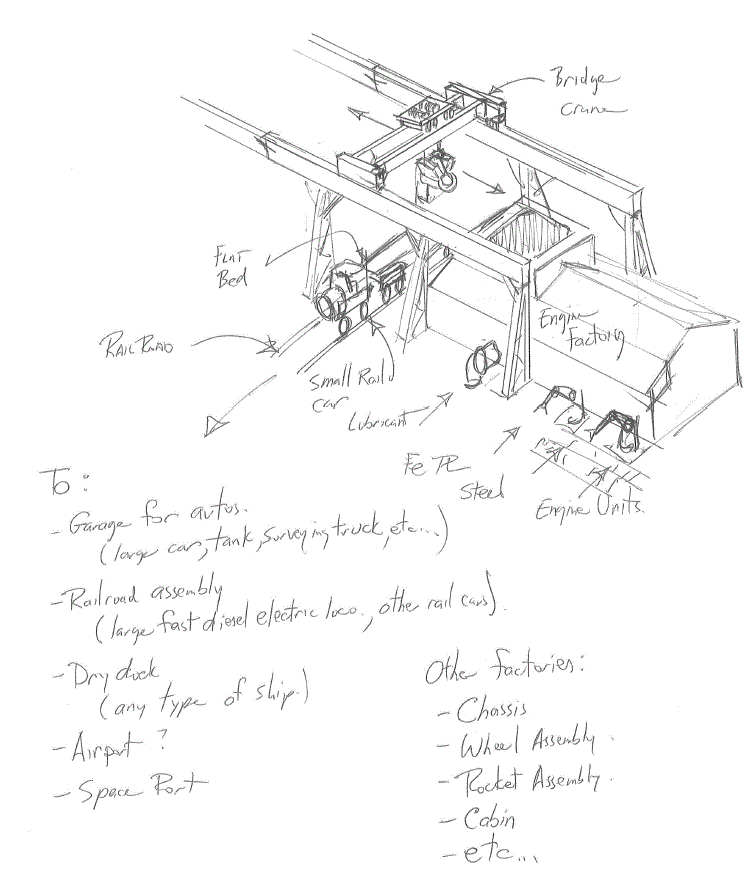 Bridge
Crane
Flat
Bed
Railroad
Small Rail
car
Lubricant
Engine
Factory
Fe
Steel
Engine Units.
To:
- Garage for autos.
(large car, tank, surveying truck, etc...)
- Railroad assembly
(large fast diesel electric loco., other rail cars).
- Dry dock
(any type of ship.)
- Airport ?
- Space Port
Other factories:
- Chassis
- Wheel Assembly.
- Rocket Assembly.
- Cabin
- etc...